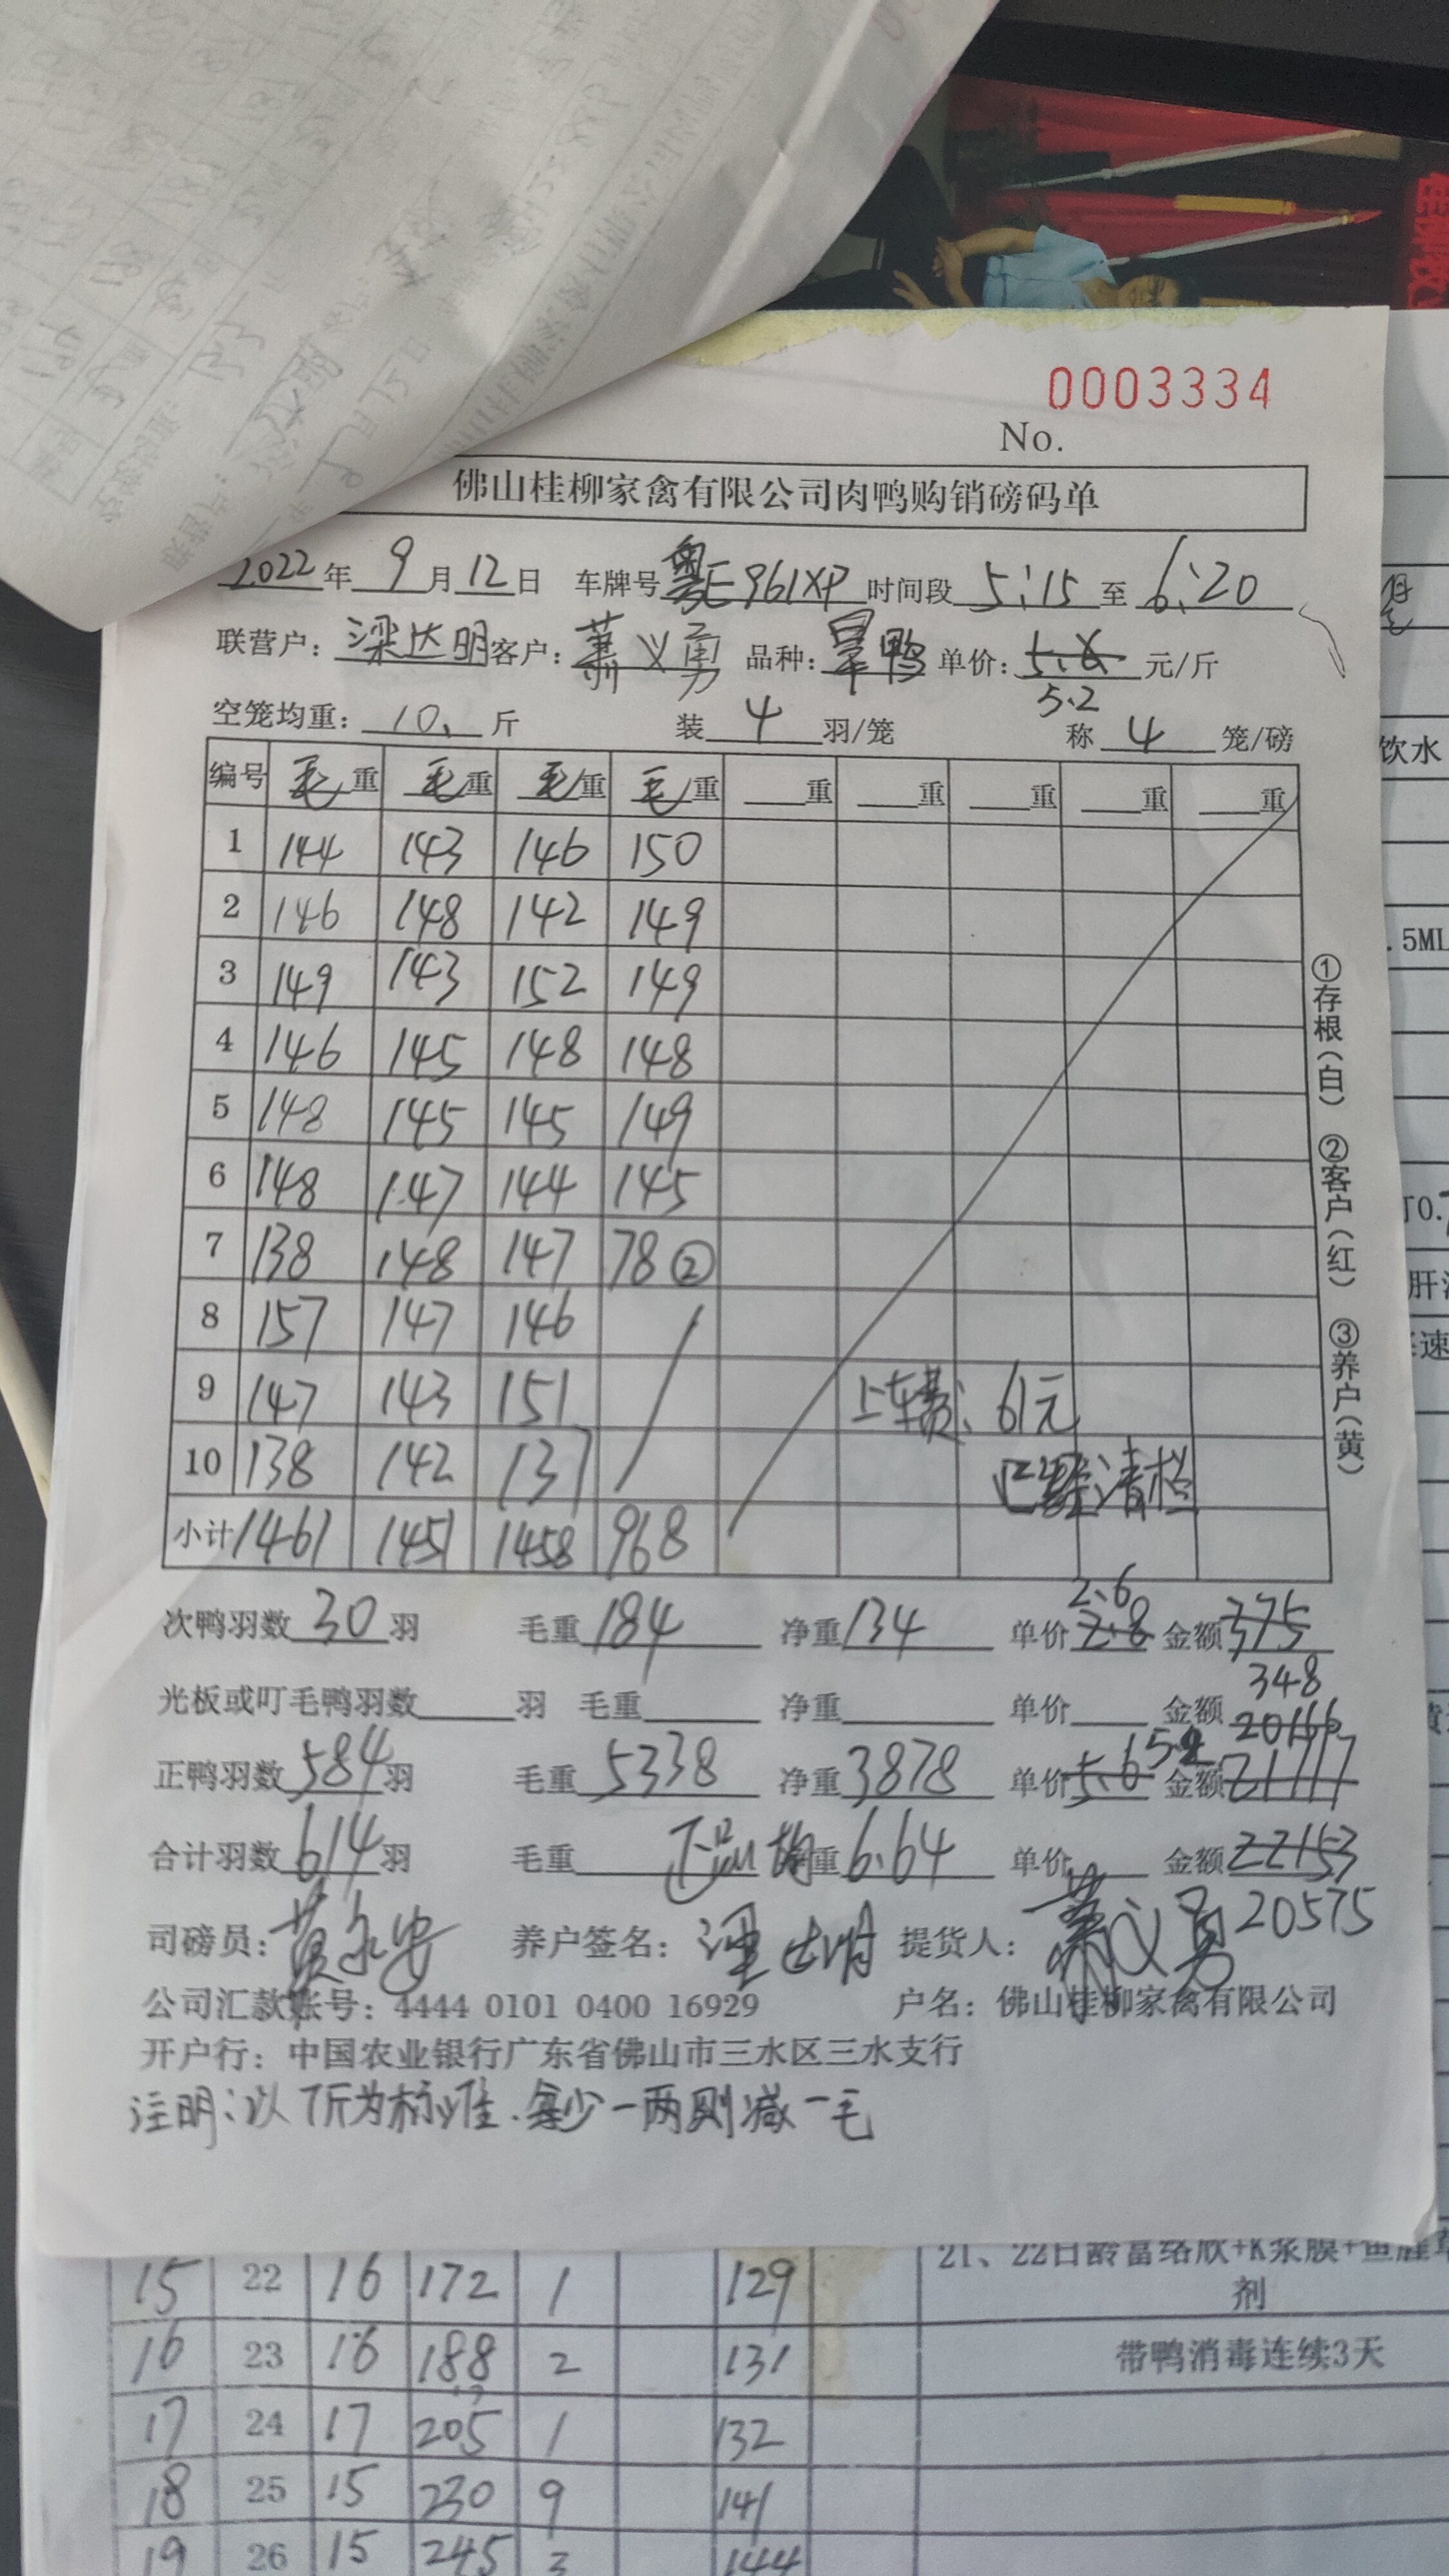 0003334
No.
佛山桂柳家禽有限公司肉鸭购销磅码单
2022年 9月12日 车牌号 粤E961XP 时间段 5:15 至 6:20
联营户: 梁达明 客户: 萧义勇 品种: 旱鸭 单价: 5.6 元/斤
5.2
空笼均重: 10. 斤 装 4 羽/笼 称 4 笼/磅
编号 毛重 毛重 毛重 毛重 重 重 重 重 重
1 144 143 146 150
2 146 148 142 149
3 149 143 152 149
4 146 145 148 148
5 148 145 145 149
6 148 147 144 145
7 138 148 147 78②
8 157 147 146
9 147 143 151 上车费: 61元
10 138 142 137 已 清栏
小计 1461 1451 1458 968
①存根(白) ②客户(红) ③养户(黄)
2.6
次鸭羽数 30 羽 毛重 184 净重 134 单价 2.8 金额 375
348
光板或叮毛鸭羽数 羽 毛重 净重 单价 金额
20166
正鸭羽数 584 羽 毛重 5338 净重 3878 单价 5.6 5.2 金额 21717
合计羽数 614 羽 毛重 均重 6.64 单价 金额 22153
20575
司磅员: 黄永安 养户签名: 梁达明 提货人: 萧义勇
公司汇款账号: 4444 0101 0400 16929 户名: 佛山桂柳家禽有限公司
开户行: 中国农业银行广东省佛山市三水区三水支行
注明:以7斤为标准.每少一两则减一毛
饮水
.5ML
21、22日龄
剂
15 22 16 172 1 129
16 23 16 188 2 131 带鸭消毒连续3天
17 24 17 205 1 132
18 25 15 230 9 141
19 26 15 245 3 144